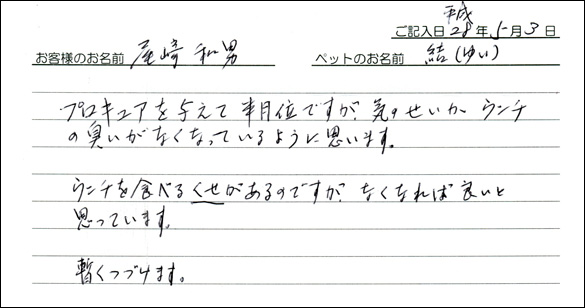 平成
ご記入日 28年5月3日
お客様のお名前 尾崎 和男 ペットのお名前 結(ゆい)
プロキュアを与えて半月位ですが、気のせいか ウンチ
の臭いがなくなっているように思います。
ウンチを食べるくせがあるのですが、なくなれば良いと
思っています。
暫くつづけます。